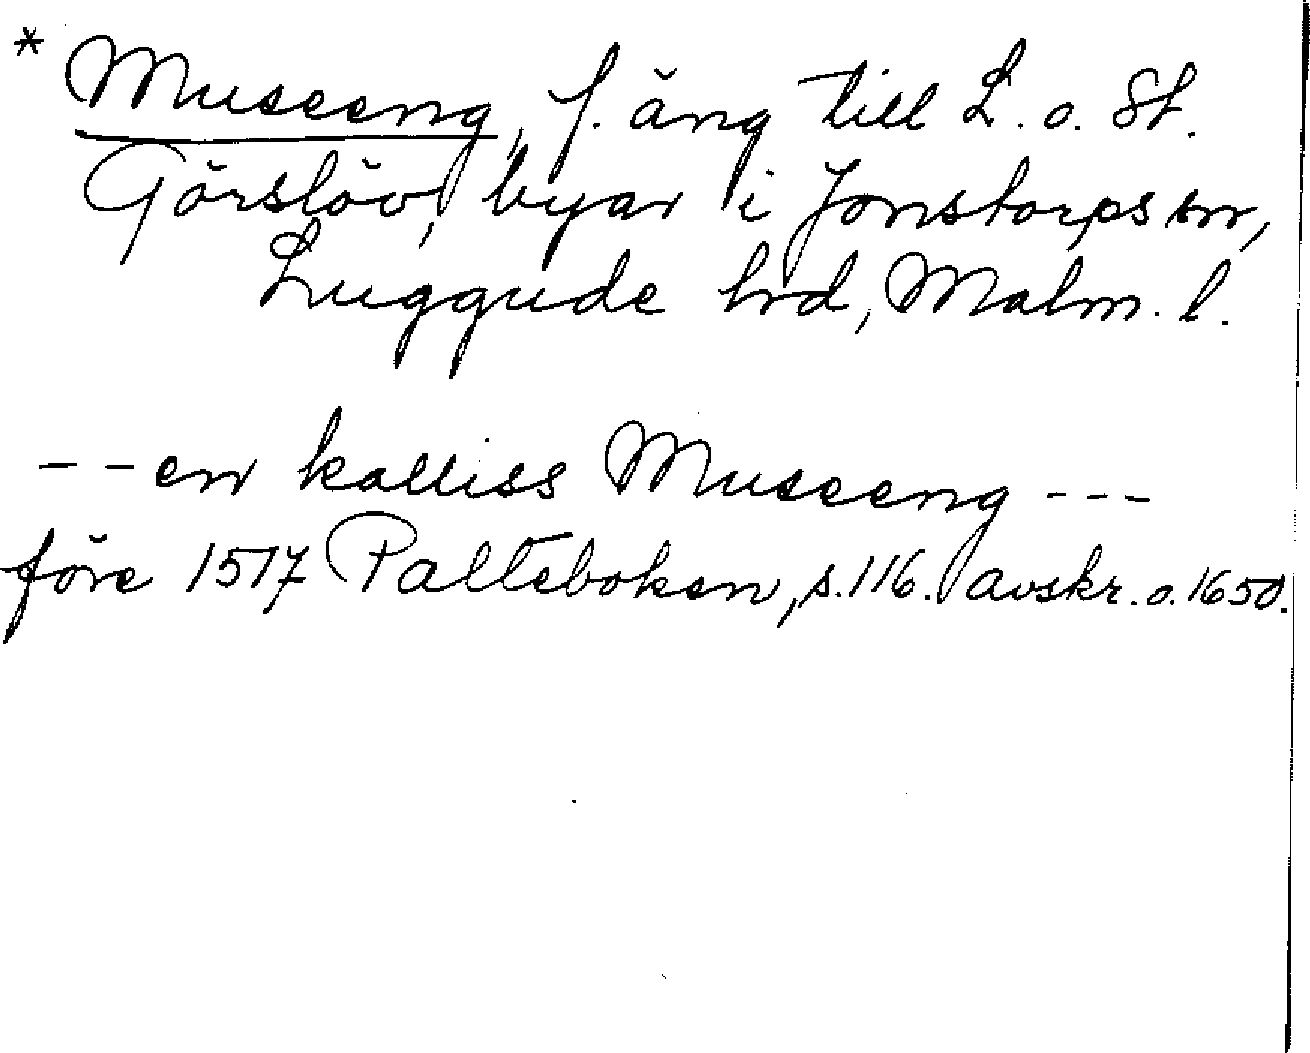 * Museeng, f. äng till L. o. St.
Görslöv, byar i Jonstorps sn,
Luggude hd, Malm. l.
-- en kalliss Museeng ---
före 1517 Palteboken, s. 116. avskr. o. 1650.